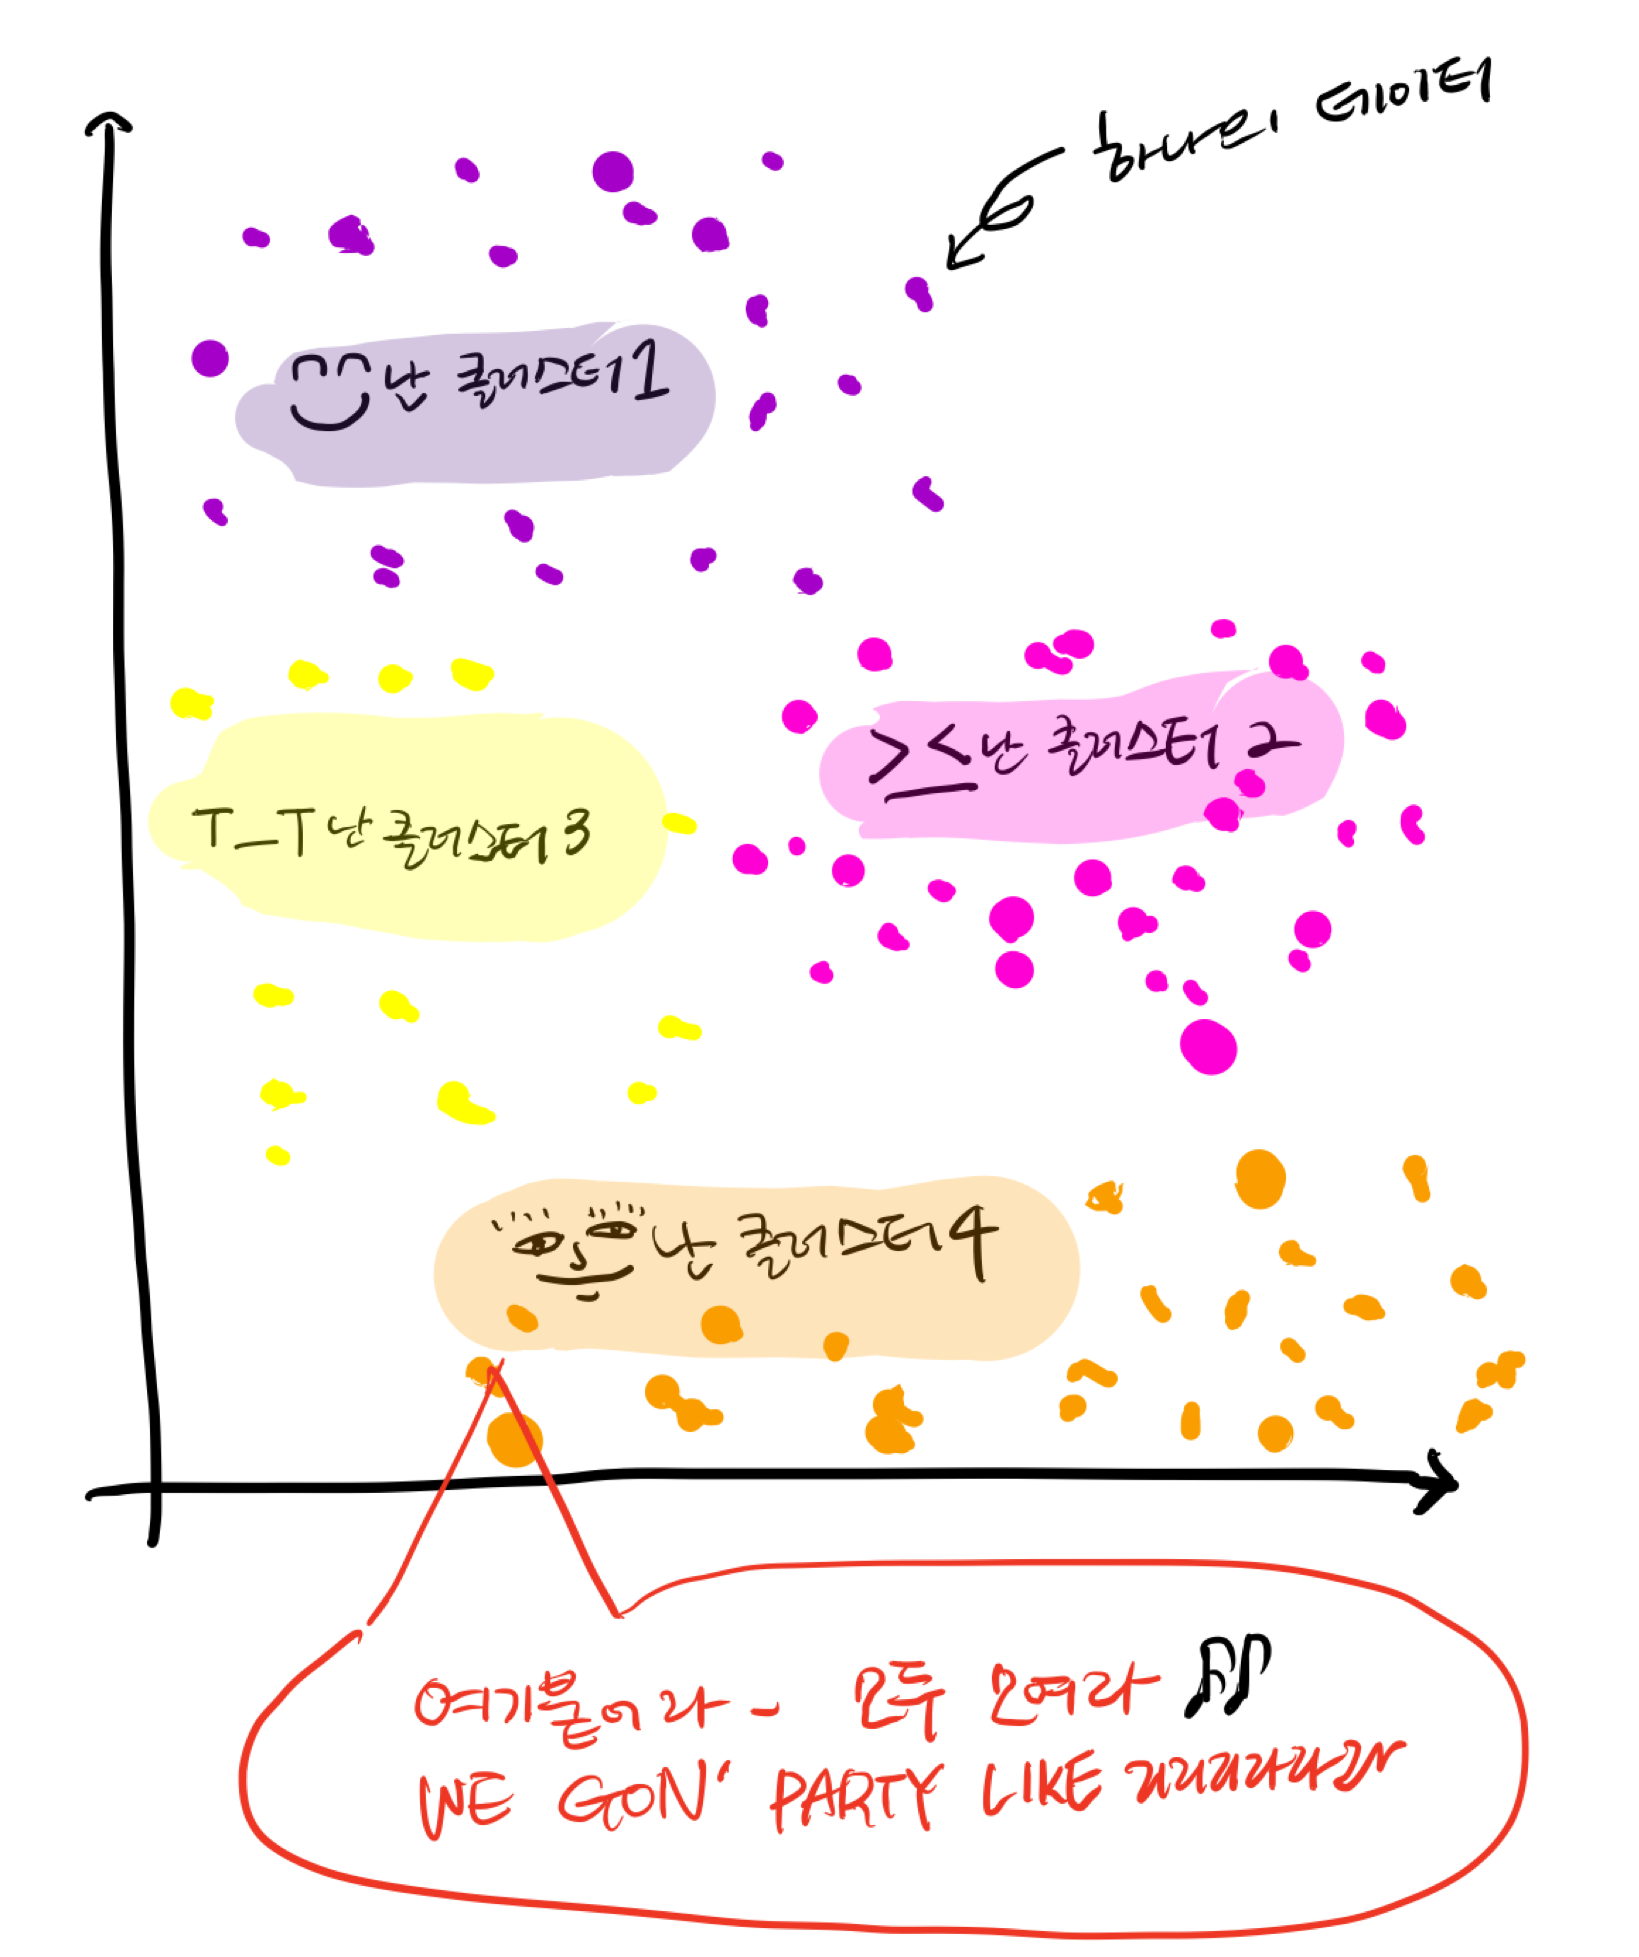 하나의 데이터
난 클러스터1
> < 난 클러스터 2
T_T 난 클러스터3
난 클러스터4
여기붙어라 - 모두 모여라
WE GON' PARTY LIKE 리리리라라라